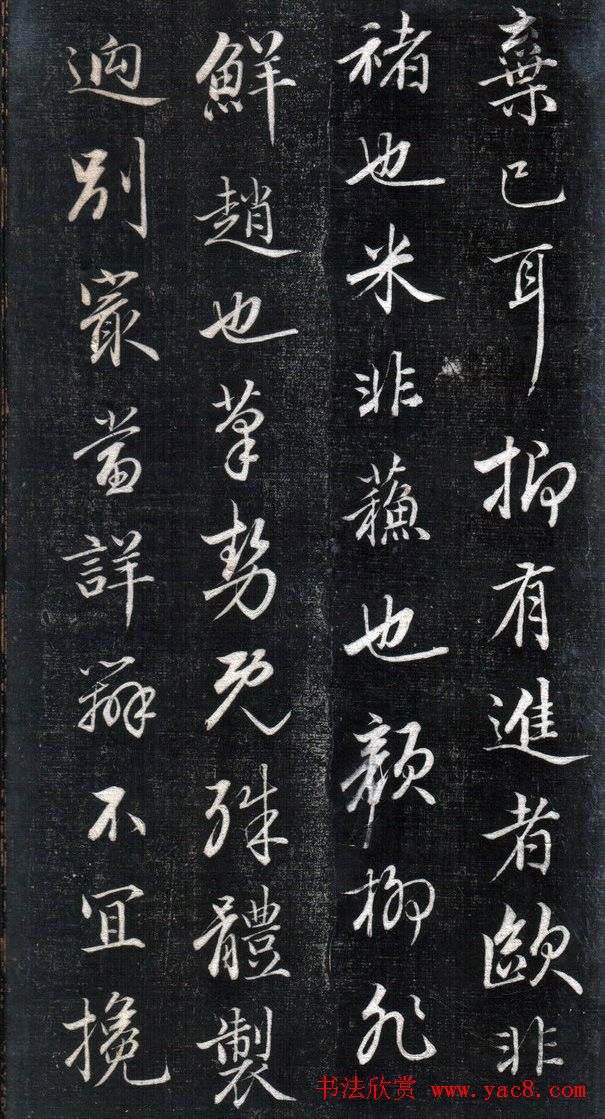 棄已耳抑有進者歐非
褚也米非蘓也顏柳非
鮮趙也筆勢既殊體製
逈別最當詳辨不宜攙
书法欣赏 www.yac8.com